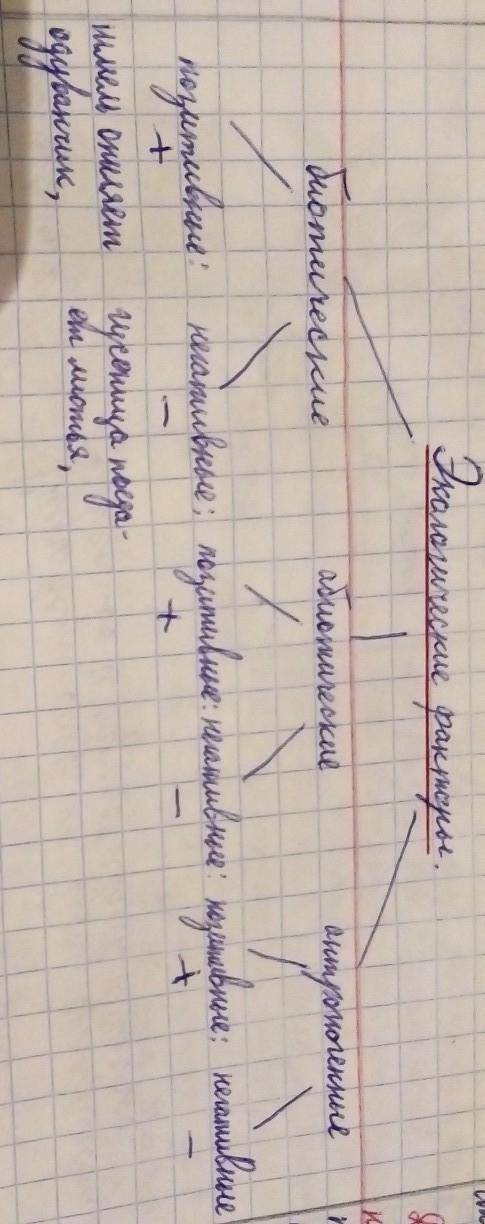 Экологические факторы.
биотические абиотические антропогенные
позитивные: негативные; позитивные: негативные: позитивные; негативные
+ - + - + -
шмель опыляет гусеница поеда-
одуванчик, ет листья,